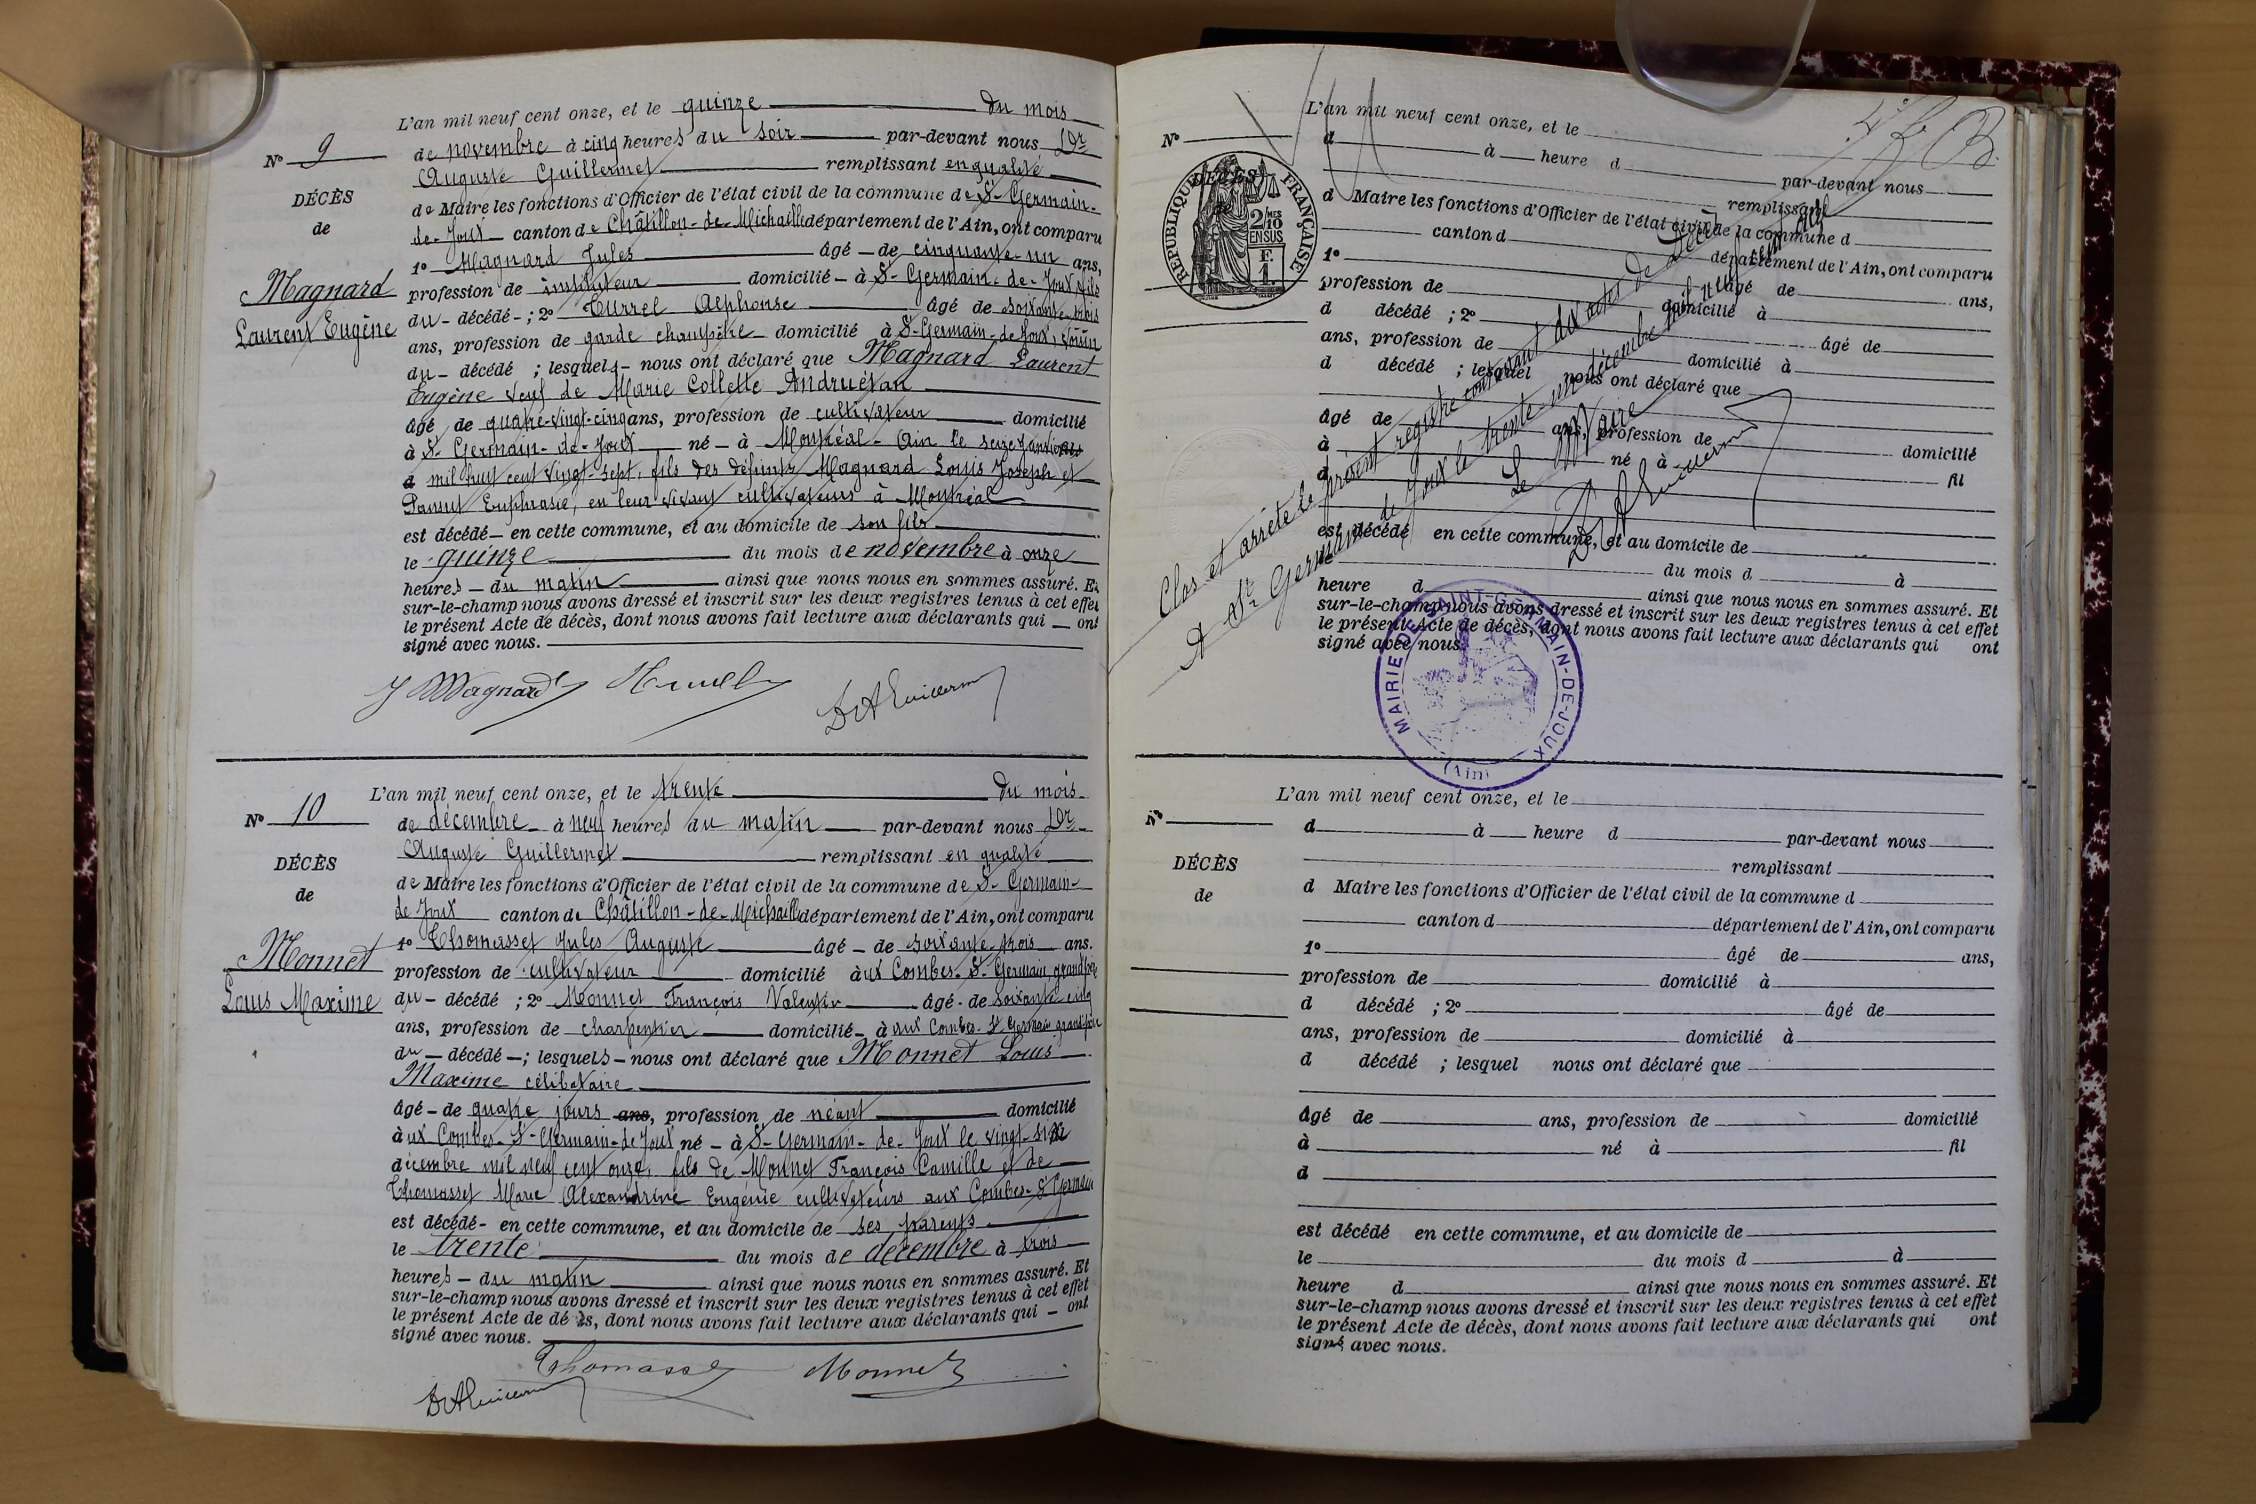 L'an mil neuf cent onze, et le quinze du mois
de novembre à cinq heures du soir par-devant nous Dr
Auguste Guillermet remplissant en qualité
de Maire les fonctions d'Officier de l'état civil de la commune de St-Germain-
de-Joux canton de Châtillon-de-Michaille département de l'Ain, ont comparu
1° Magnard Jules âgé de cinquante-un ans,
profession de instituteur domicilié à St-Germain-de-Joux fils
du décédé ; 2° Turrel Alphonse âgé de soixante-trois
ans, profession de garde champêtre domicilié à St-Germain-de-Joux, voisin
du décédé ; lesquels nous ont déclaré que Magnard Laurent
Eugène veuf de Marie Collette Andruétan
âgé de quatre-vingt-cinq ans, profession de cultivateur domicilié
à St-Germain-de-Joux né à Montréal-Ain le seize janvier
mil huit cent vingt-sept, fils des défunts Magnard Louis Joseph et
Euphrasie, en leur vivant cultivateurs à Montréal
est décédé en cette commune, et au domicile de son fils
le quinze du mois de novembre à onze
heures du matin ainsi que nous nous en sommes assuré. Et
sur-le-champ nous avons dressé et inscrit sur les deux registres tenus à cet effet
le présent Acte de décès, dont nous avons fait lecture aux déclarants qui ont
signé avec nous.
J Magnard Dr A Guillermet
N° 9
DÉCÈS
de
Magnard
Laurent Eugène
L'an mil neuf cent onze, et le trente du mois
de décembre à neuf heures du matin par-devant nous Dr
Auguste Guillermet remplissant en qualité
de Maire les fonctions d'Officier de l'état civil de la commune de St-Germain-
de Joux canton de Châtillon-de-Michaille département de l'Ain, ont comparu
1° Thomasset Jules Auguste âgé de soixante-trois ans.
profession de cultivateur domicilié aux Combes-St-Germain grand père
du décédé ; 2° Monnet François Valentin âgé de soixante cinq
ans, profession de charpentier domicilié à aux Combes-St Germain grand père
du décédé ; lesquels nous ont déclaré que Monnet Louis
Maxime célibataire
âgé de quatre jours ans, profession de néant domicilié
aux Combes-St-Germain-de Joux né à St-Germain-de-Joux le vingt-six
décembre mil neuf cent onze, fils de Monnet François Camille et de
Thomasset Marie Alexandrine Eugénie cultivateurs aux Combes-St Germain
est décédé en cette commune, et au domicile de ses parents
le trente du mois de décembre à trois
heures du matin ainsi que nous nous en sommes assuré. Et
sur-le-champ nous avons dressé et inscrit sur les deux registres tenus à cet effet
le présent Acte de décès, dont nous avons fait lecture aux déclarants qui ont
signé avec nous.
Thomasset Monnet
Dr A Guillermet
N° 10
DÉCÈS
de
Monnet
Louis Maxime
L'an mil neuf cent onze, et le
d à heure d par-devant nous
remplissant
d Maire les fonctions d'Officier de l'état civil de la commune d
canton d département de l'Ain, ont comparu
1° âgé de ans,
profession de domicilié à
d décédé ; 2° âgé de
ans, profession de domicilié à
d décédé ; lesquel nous ont déclaré que
âgé de ans, profession de domicilié
à né à fil
d
est décédé en cette commune, et au domicile de
le du mois d à
heure d ainsi que nous nous en sommes assuré. Et
sur-le-champ nous avons dressé et inscrit sur les deux registres tenus à cet effet
le présent Acte de décès, dont nous avons fait lecture aux déclarants qui ont
signé avec nous.
N°
DÉCÈS
de
RÉPUBLIQUE FRANÇAISE
2/10 MES
EN SUS
F.
1.
Clos et arrêté le présent registre contenant dix actes de décès
A St Germain de Joux le trente-un décembre mil neuf cent onze
Le Maire
Dr A Guillermet
MAIRIE DE SAINT-GERMAIN-DE-JOUX
(Ain)
L'an mil neuf cent onze, et le
d à heure d par-devant nous
remplissant
d Maire les fonctions d'Officier de l'état civil de la commune d
canton d département de l'Ain, ont comparu
1° âgé de ans,
profession de domicilié à
d décédé ; 2° âgé de
ans, profession de domicilié à
d décédé ; lesquel nous ont déclaré que
âgé de ans, profession de domicilié
à né à fil
d
est décédé en cette commune, et au domicile de
le du mois d à
heure d ainsi que nous nous en sommes assuré. Et
sur-le-champ nous avons dressé et inscrit sur les deux registres tenus à cet effet
le présent Acte de décès, dont nous avons fait lecture aux déclarants qui ont
signé avec nous.
N°
DÉCÈS
de